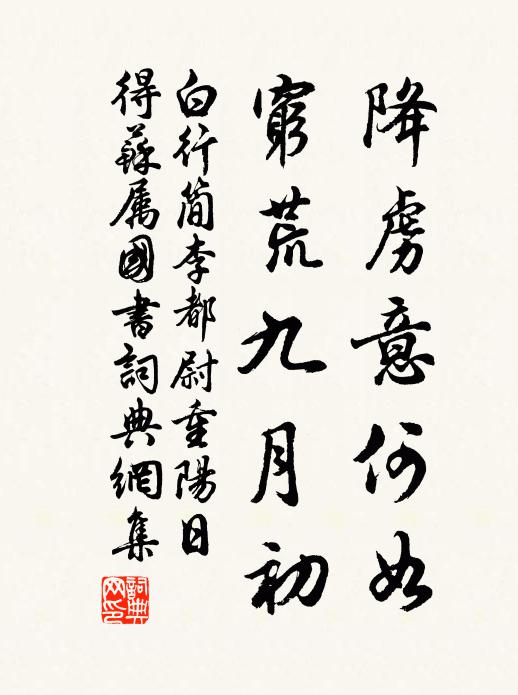 降虜意何如
窮荒九月初
白行簡李都尉重陽日
得蘇属國書詞典網集
詞典
网印